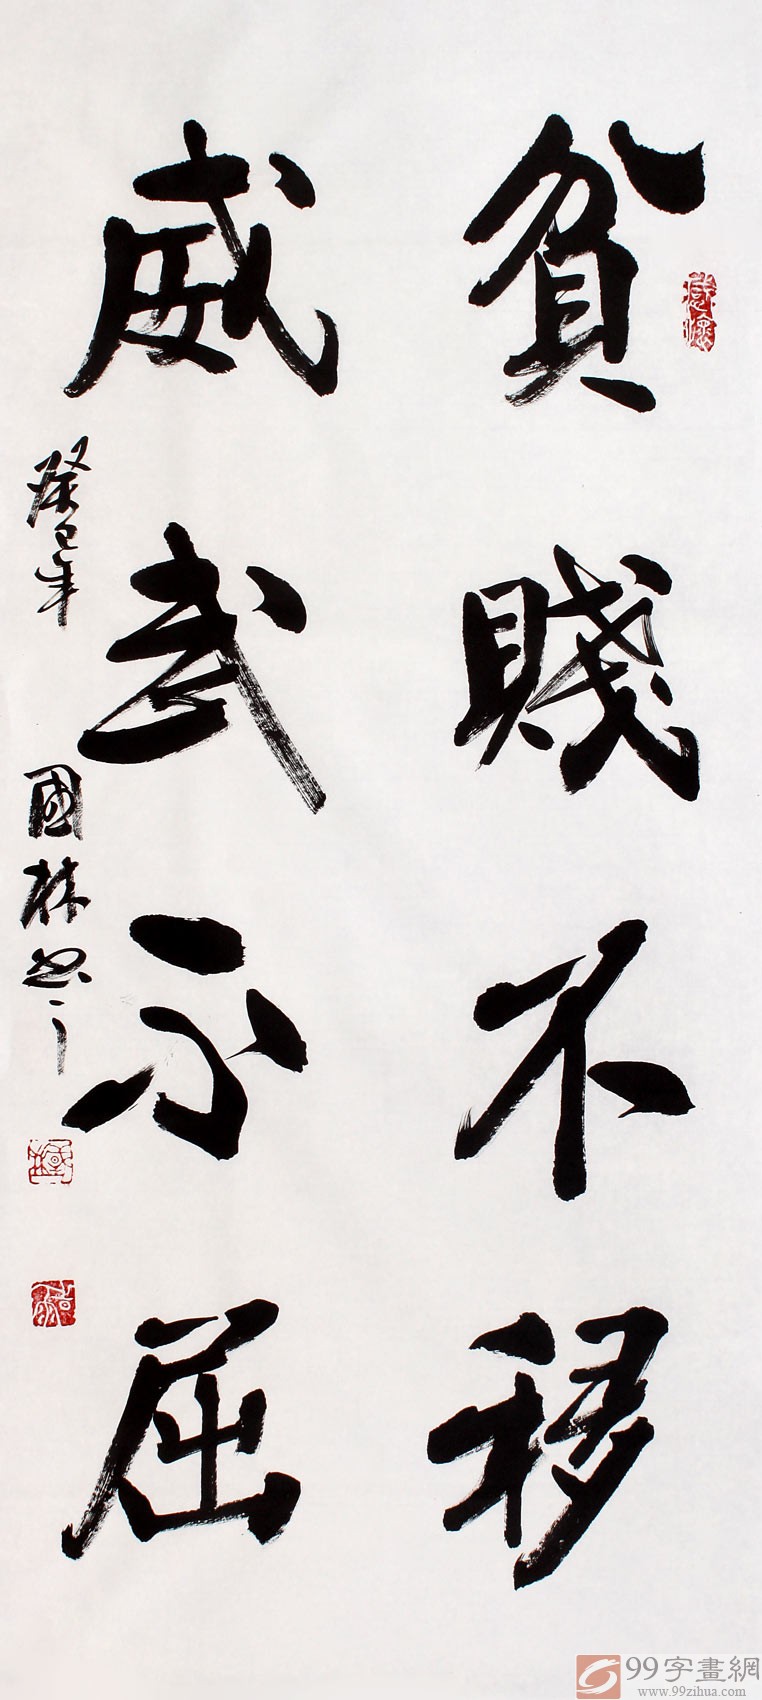 貧賤不移
威武不屈
癸巳年
國林書
99字畫網
www.99zihua.com